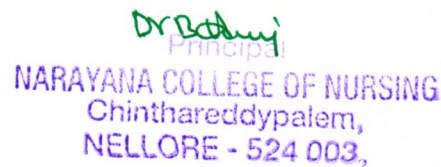 Principal
NARAYANA COLLEGE OF NURSING
Chinthareddypalem,
NELLORE - 524 003,